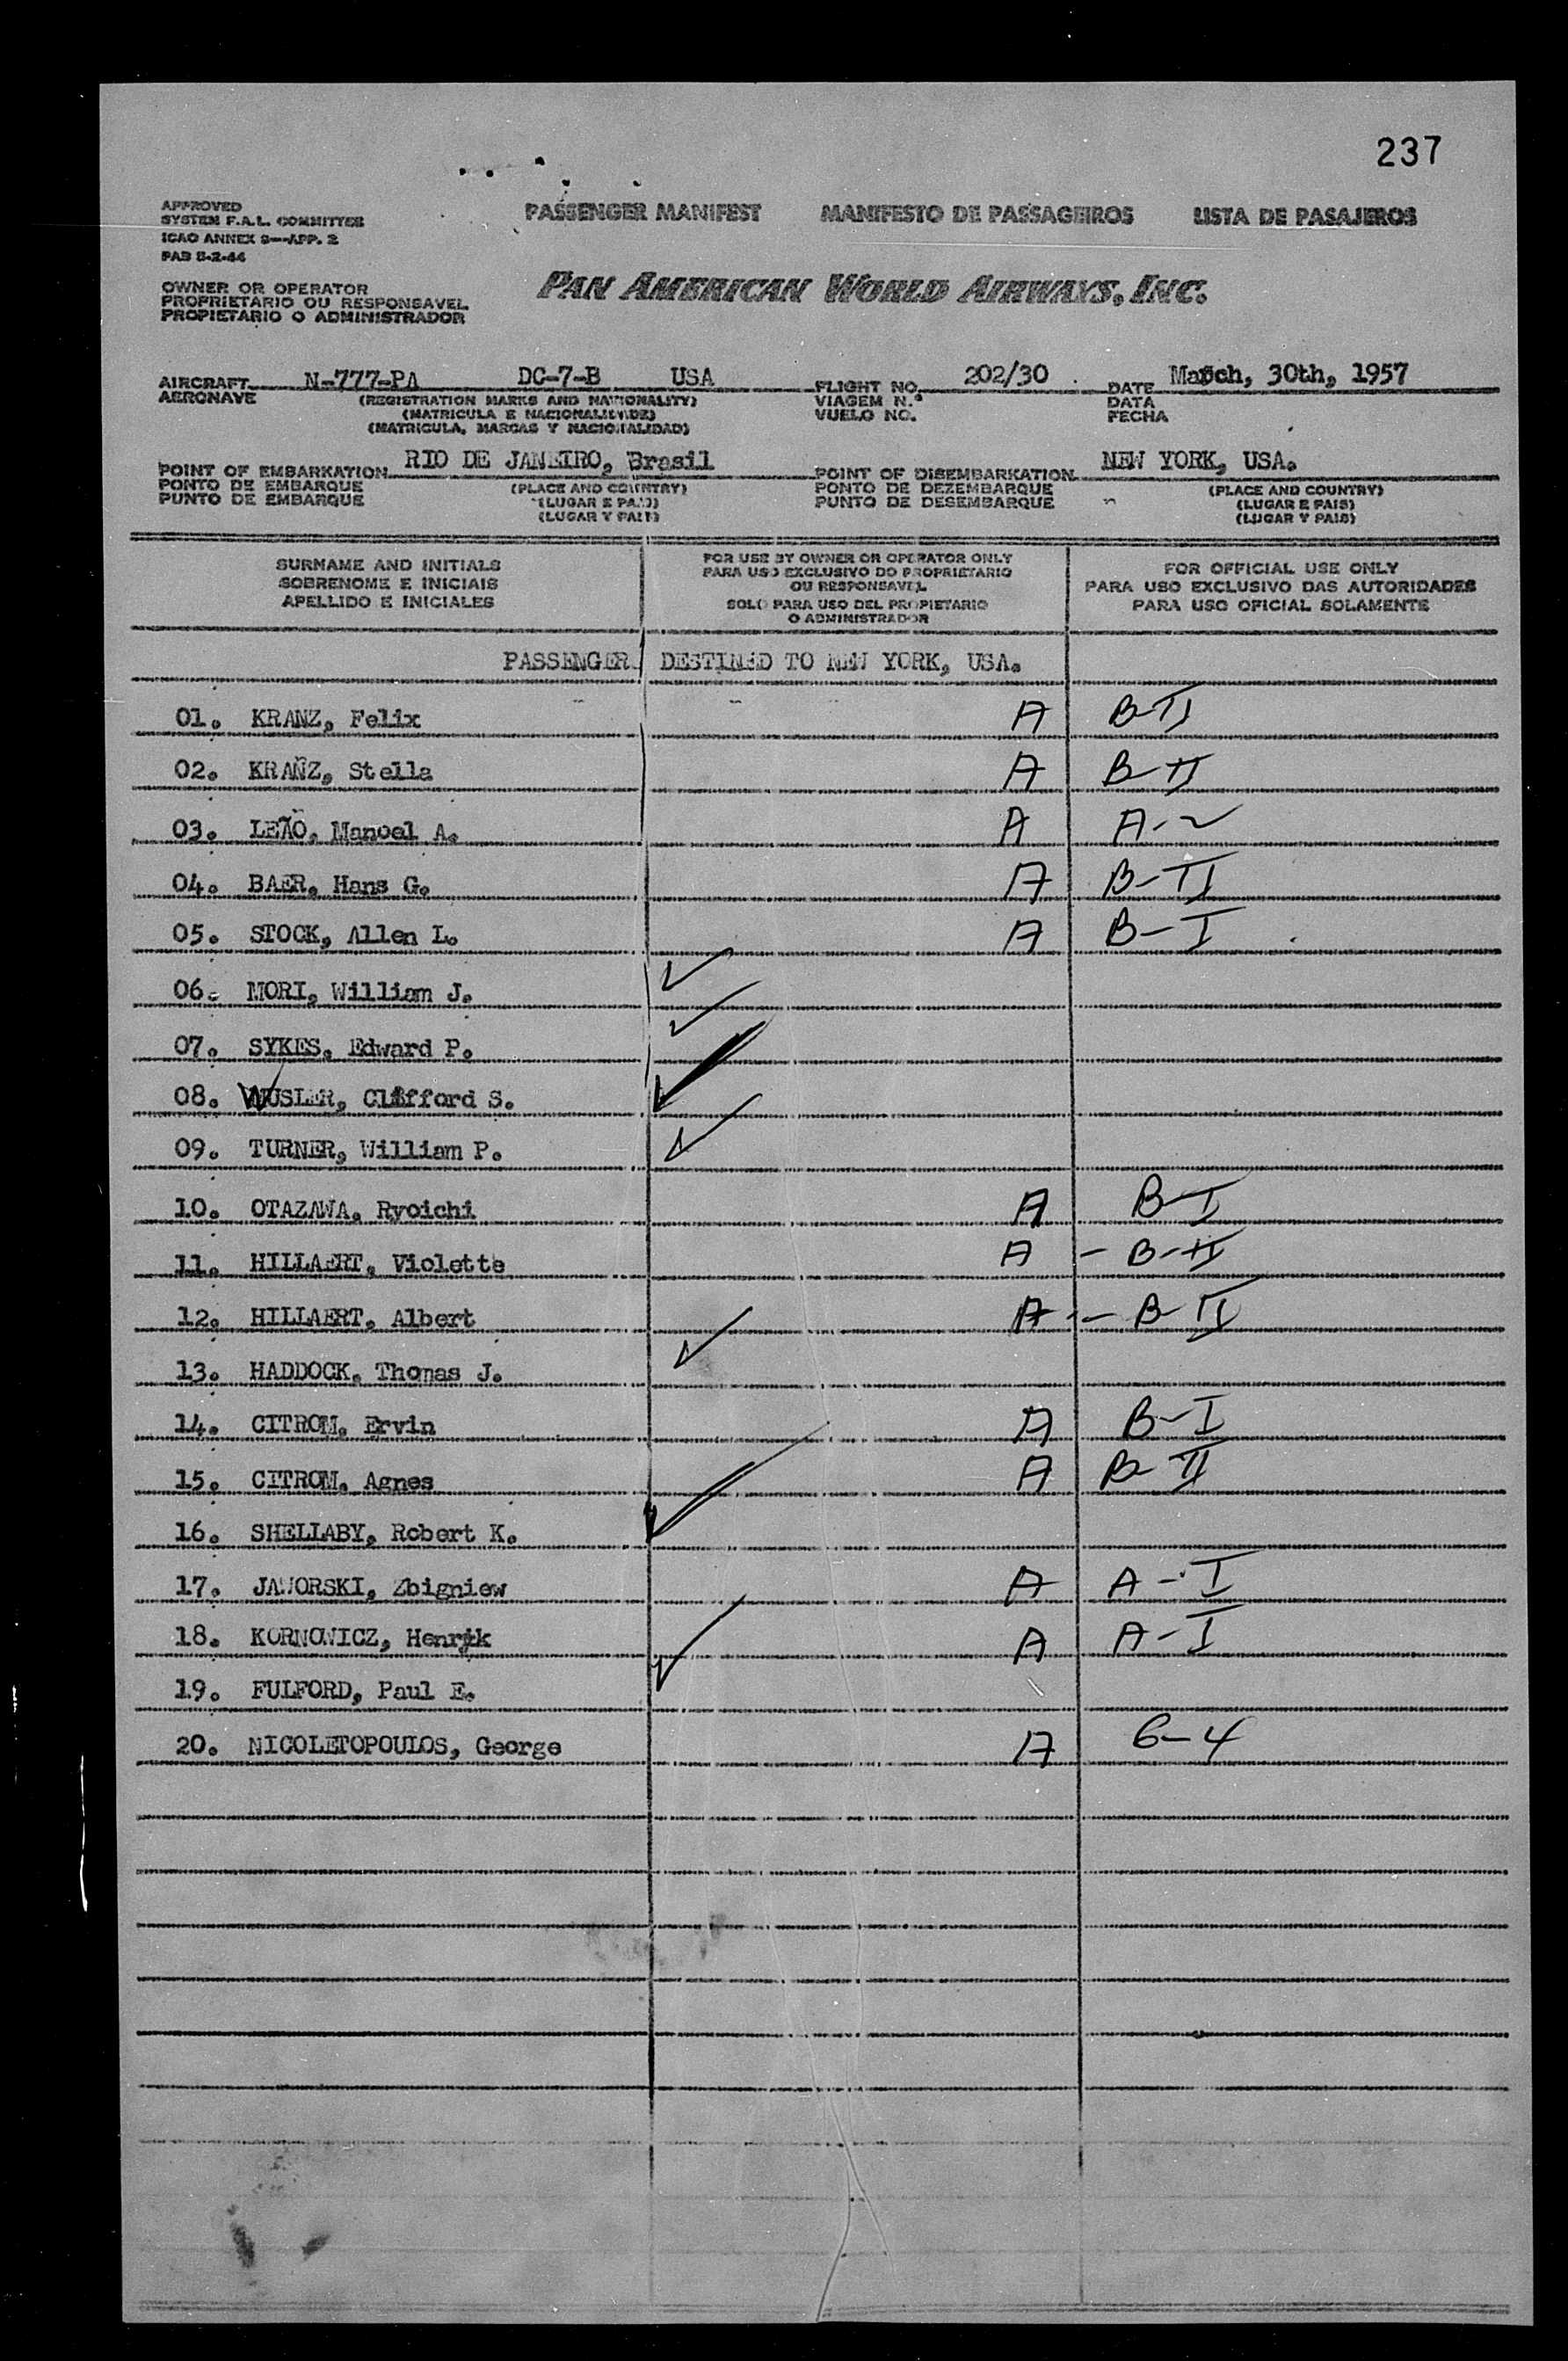 237
APPROVED
SYSTEM F.A.L. COMMITTEE
ICAO ANNEX 9—APP. 2
PAB 8-2-44
PASSENGER MANIFEST MANIFESTO DE PASSAGEIROS LISTA DE PASAJEROS
OWNER OR OPERATOR
PROPRIETARIO OU RESPONSAVEL
PROPIETARIO O ADMINISTRADOR
PAN AMERICAN WORLD AIRWAYS, INC.
AIRCRAFT N-777-PA DC-7-B USA FLIGHT NO. 202/30 DATE March, 30th, 1957
AERONAVE (REGISTRATION MARKS AND NATIONALITY) VIAGEM N.º DATA
(MATRICULA E NACIONALIDADE) VUELO NO. FECHA
(MATRICULA, MARCAS Y NACIONALIDAD)
POINT OF EMBARKATION RIO DE JANEIRO, Brasil POINT OF DISEMBARKATION NEW YORK, USA.
PONTO DE EMBARQUE (PLACE AND COUNTRY) PONTO DE DEZEMBARQUE (PLACE AND COUNTRY)
PUNTO DE EMBARQUE (LUGAR E PAIS) PUNTO DE DESEMBARQUE (LUGAR E PAIS)
(LUGAR Y PAIS) (LUGAR Y PAIS)
SURNAME AND INITIALS
SOBRENOME E INICIAIS
APELLIDO E INICIALES
FOR USE BY OWNER OR OPERATOR ONLY
PARA USO EXCLUSIVO DO PROPRIETARIO
OU RESPONSAVEL
SOLO PARA USO DEL PROPIETARIO
O ADMINISTRADOR
FOR OFFICIAL USE ONLY
PARA USO EXCLUSIVO DAS AUTORIDADES
PARA USO OFICIAL SOLAMENTE
PASSENGER DESTINED TO NEW YORK, USA.
01. KRANZ, Felix A B-II
02. KRANZ, Stella A B-II
03. LEÃO, Manoel A. A A-2
04. BAER, Hans G. A B-II
05. STOCK, Allen L. A B-I
06. MORI, William J. ✓
07. SYKES, Edward P. ✓
08. WUSLER, Clifford S. ✓
09. TURNER, William P. ✓
10. OTAZAWA, Ryoichi A B-I
11. HILLAERT, Violette A - B-II
12. HILLAERT, Albert A - B-II
13. HADDOCK, Thomas J. ✓
14. CITROM, Ervin A B-I
15. CITROM, Agnes A B-II
16. SHELLABY, Robert K. ✓
17. JAWORSKI, Zbigniew A A-I
18. KORNOWICZ, Henryk A A-I
19. FULFORD, Paul E. ✓
20. NICOLETOPOULOS, George A G-4